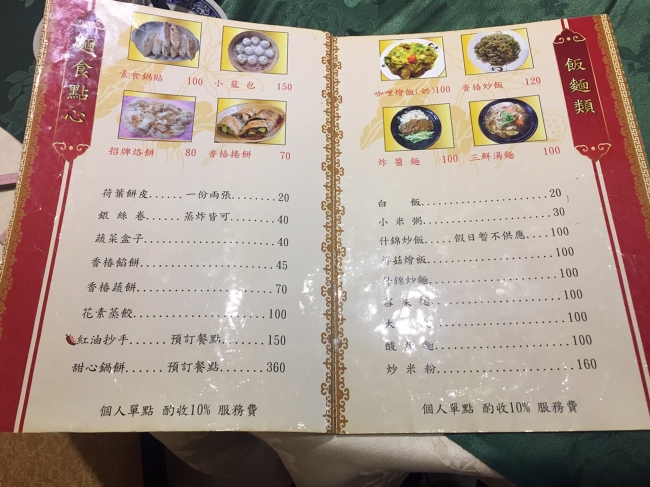 麵食點心
素食鍋點 100 小籠包 150
招牌烙餅 80 香椿捲餅 70
荷葉餅皮......一份兩張........20
銀絲卷......蒸炸皆可........40
蔬菜盒子........40
香椿餡餅........45
香椿蔬餅........70
花素蒸餃........100
紅油抄手....預訂餐點.....150
甜心鍋餅....預訂餐點.....360
個人單點 酌收10% 服務費
飯麵類
咖哩燴飯(奶)100 香椿炒飯 120
炸醬麵 100 三鮮湯麵 100
白飯........20
小米粥........30
什錦炒飯.....假日暫不供應....100
菇燴飯........100
什錦炒麵........100
100
100
酸 麵........100
炒米粉........160
個人單點 酌收10% 服務費